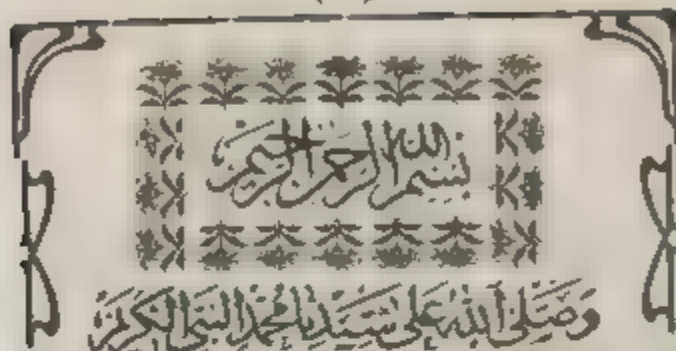 بسم الله الرحمن الرحيم
وَصَلَّى اللهُ عَلَى سَيِّدِنَا مُحَمَّدٍ النَّبِيِّ الكَرِيمِ